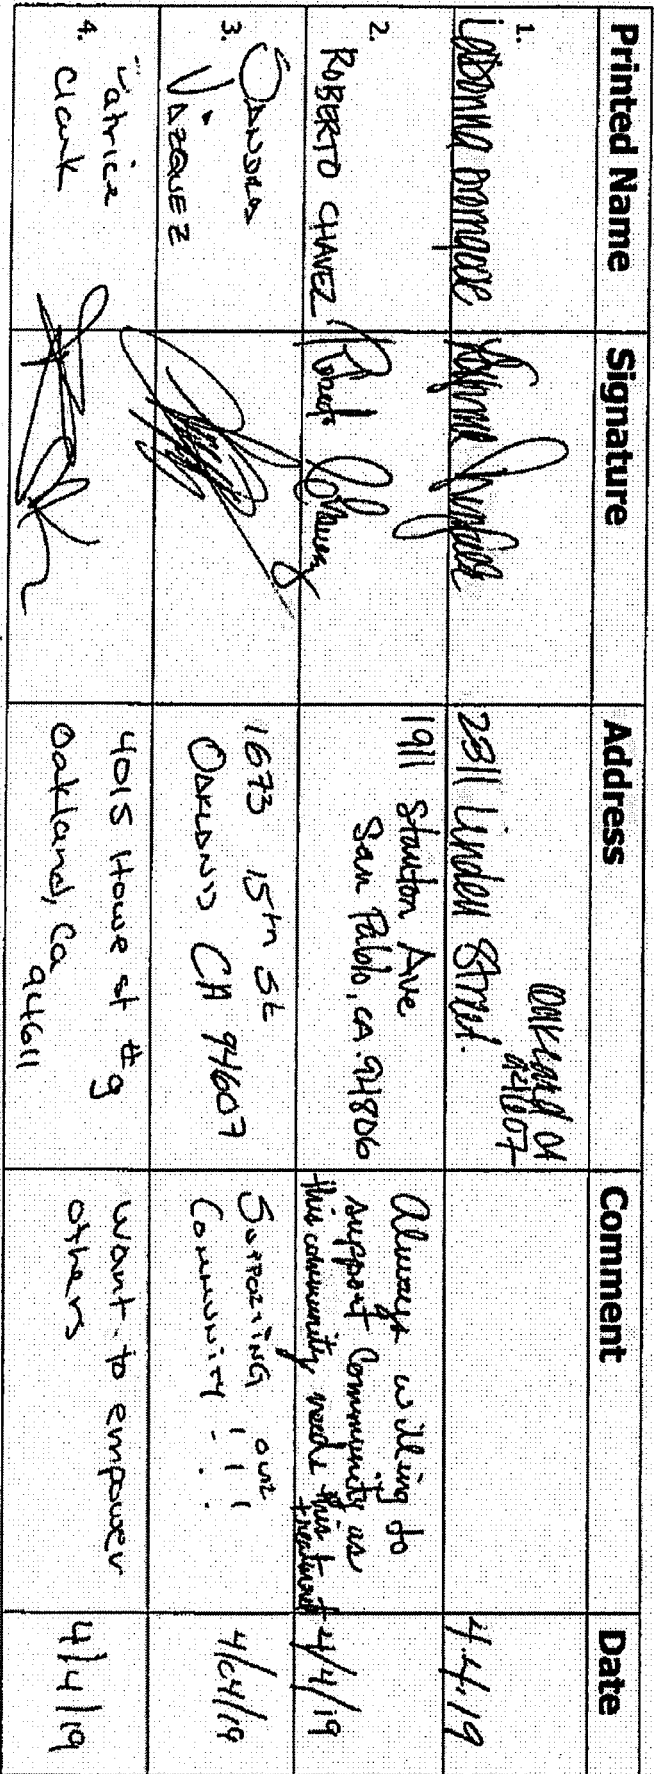 Printed Name Signature Address Comment Date
1.
2811 Linden Street.
Oakland CA
94607
4.4.19
2.
ROBERTO CHAVEZ
1911 Stanton Ave
San Pablo, CA. 94806
Always willing to
support Community as
this community needs this
treatment
4/4/19
3.
SANDRA
VAZQUEZ
1673 15th St
OAKLAND CA 94607
SUPPORTING OUR
COMMUNITY !!!
4/04/19
4.
Clark
4015 Howe st #9
Oakland, Ca
94611
want to empower
others
4/4/19